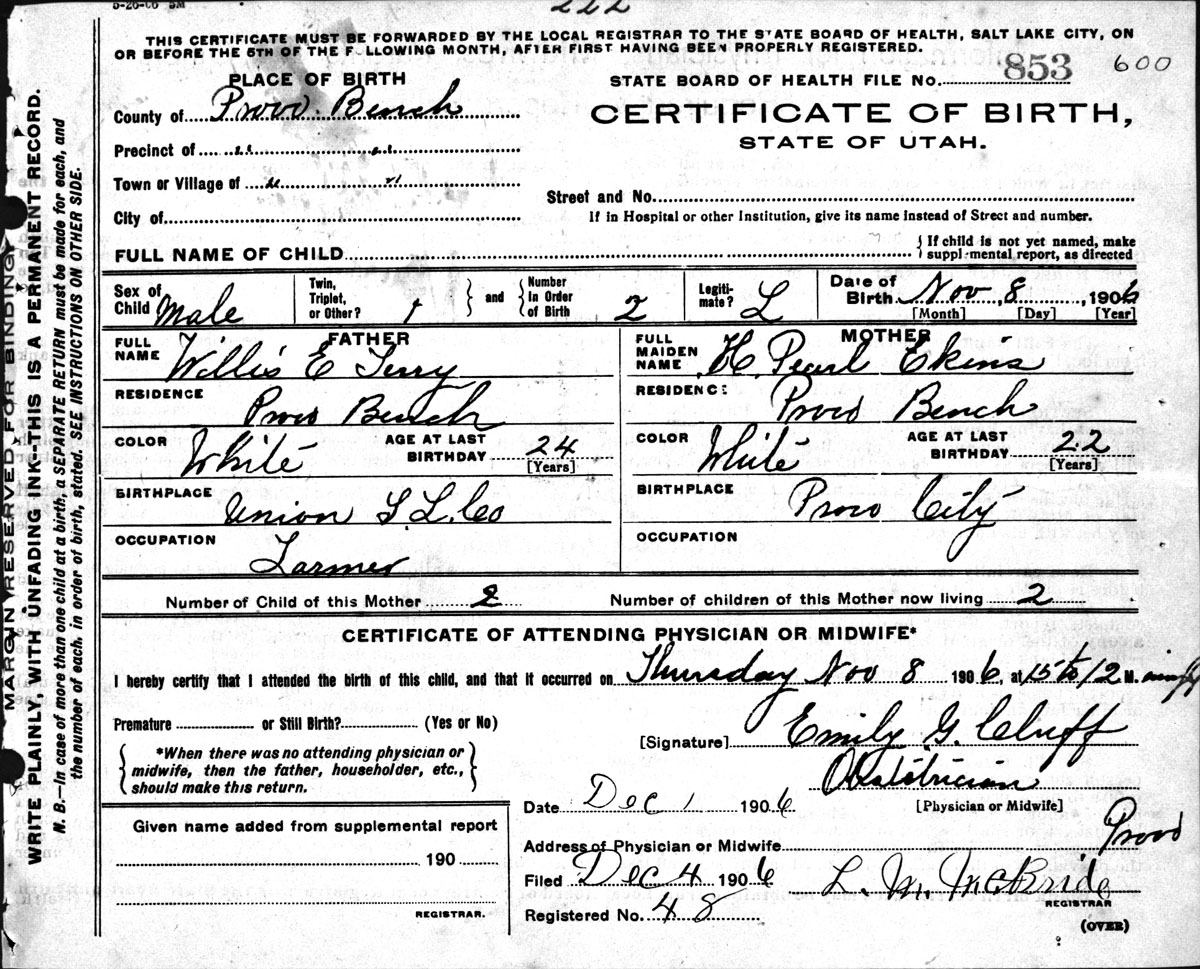 5-26-06 5M
222
THIS CERTIFICATE MUST BE FORWARDED BY THE LOCAL REGISTRAR TO THE STATE BOARD OF HEALTH, SALT LAKE CITY, ON
OR BEFORE THE 5TH OF THE F LLOWING MONTH, AFTER FIRST HAVING BEEN PROPERLY REGISTERED.
PLACE OF BIRTH
STATE BOARD OF HEALTH FILE No. 853 600
County of Provo Bench
CERTIFICATE OF BIRTH,
STATE OF UTAH.
Precinct of " "
Town or Village of " "
Street and No.
City of
If in Hospital or other Institution, give its name instead of Street and number.
FULL NAME OF CHILD
{ If child is not yet named, make
supplemental report, as directed
Sex of Child Male
Twin, Triplet, or Other? 1 } and { Number in Order of Birth 2
Legiti-mate? L
Date of Birth Nov 8, 1906
[Month] [Day] [Year]
FATHER
FULL NAME Willis E Terry
RESIDENCE Provo Bench
COLOR White
AGE AT LAST BIRTHDAY 24
[Years]
BIRTHPLACE Union S. L. Co
OCCUPATION Farmer
MOTHER
FULL MAIDEN NAME H. Pearl Ekins
RESIDENCE Provo Bench
COLOR White
AGE AT LAST BIRTHDAY 22
[Years]
BIRTHPLACE Provo City
OCCUPATION
Number of Child of this Mother 2
Number of children of this Mother now living 2
CERTIFICATE OF ATTENDING PHYSICIAN OR MIDWIFE*
I hereby certify that I attended the birth of this child, and that it occurred on Thursday Nov 8 1906, at 15 to 12 M.
Premature or Still Birth? (Yes or No)
{ *When there was no attending physician or
midwife, then the father, householder, etc.,
should make this return. }
[Signature] Emily G. Cluff
Obstetrician
[Physician or Midwife]
Date Dec 1 1906
Address of Physician or Midwife Provo
Filed Dec 4 1906 L. M. McBride
REGISTRAR
Registered No. 48
(OVER)
Given name added from supplemental report
190
REGISTRAR.
MARGIN RESERVED FOR BINDING
WRITE PLAINLY, WITH UNFADING INK--THIS IS A PERMANENT RECORD.
N. B.—In case of more than one child at a birth, a SEPARATE RETURN must be made for each, and
the number of each, in order of birth, stated. SEE INSTRUCTIONS ON OTHER SIDE.